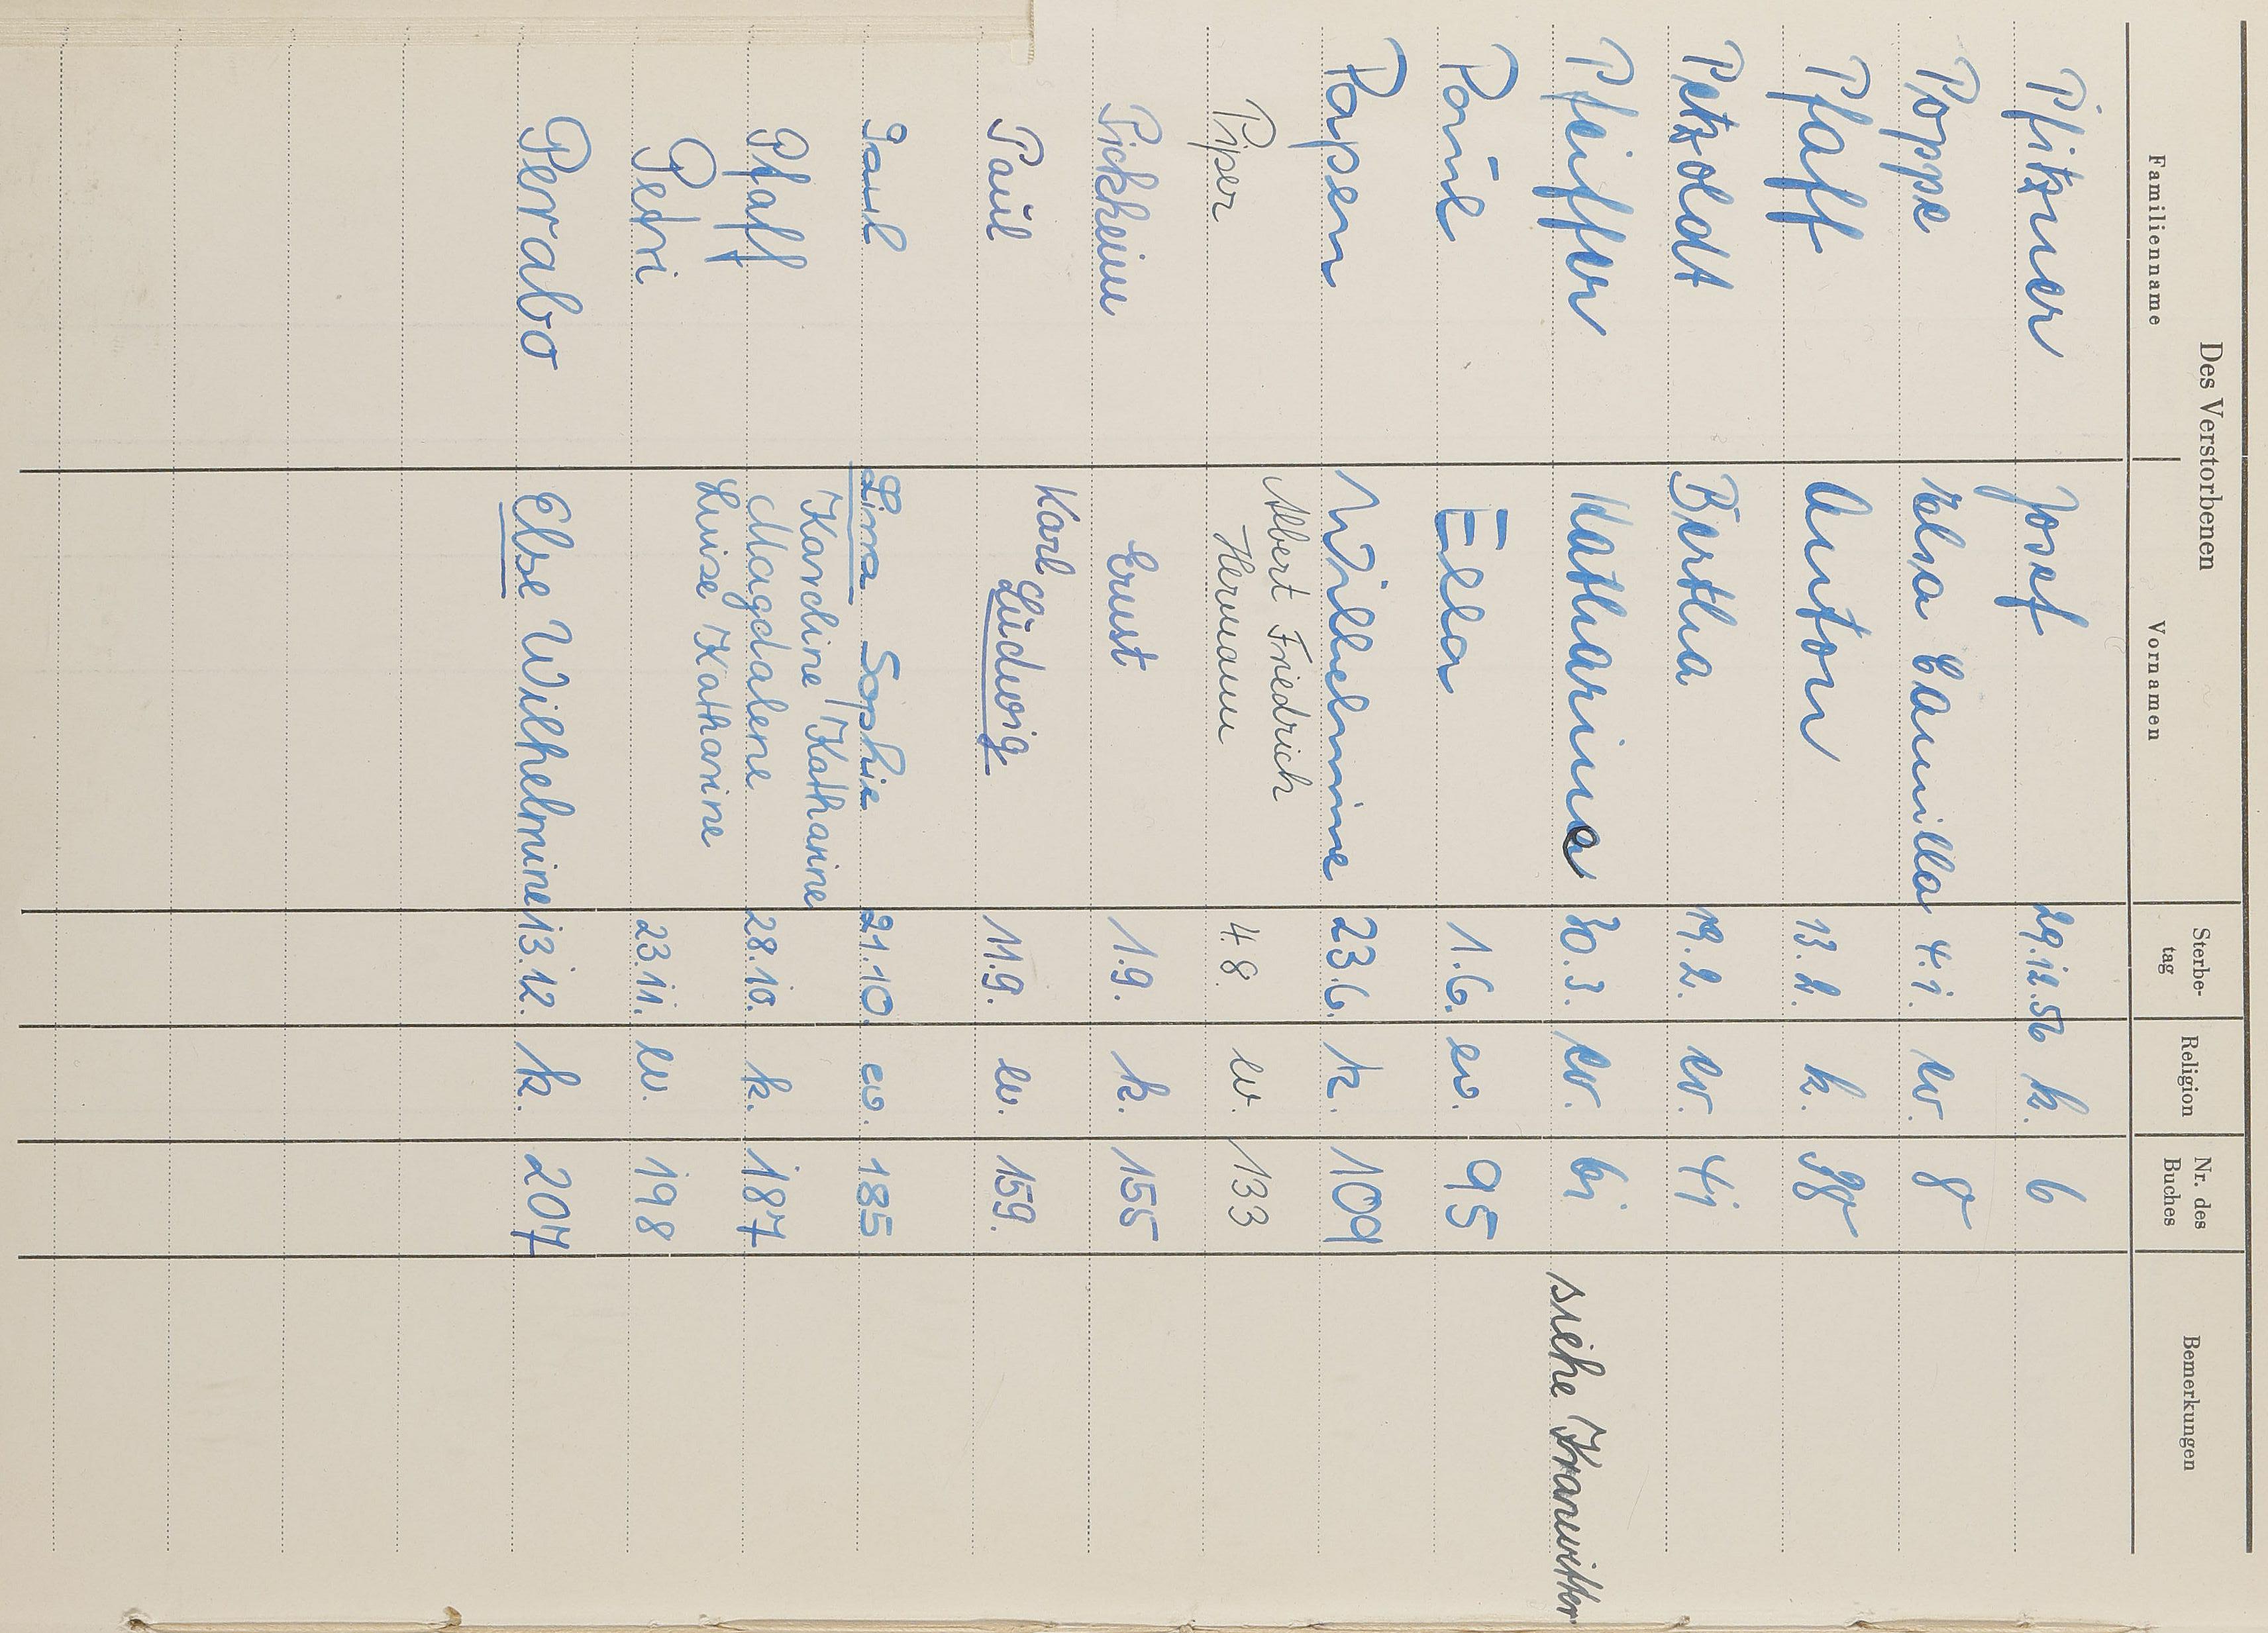 Des Verstorbenen
Familienname Vornamen Sterbe-tag Religion Nr. des Buches Bemerkungen
Pfitzner Josef 29.12.56 k. 6
Poppe Elsa Camilla 4.1. ev. 8
Pfaff Anton 13.2. k. 38
Petzoldt Bertha 19.2. ev. 41
Pfeiffer Katharina 30.3. ev. 61 siehe Kranwitter
Paul Ella 1.6. ev. 95
Papen Wilhelmine 23.6. k. 109
Albert Friedrich
Piper Hermann 4.8. ev. 133
Pickheim Ernst 1.9. k. 155
Karl
Paul Ludwig 11.9. ev. 159.
Paul Lina Sophie 21.10. ev. 185
Karoline Katharine
Pfaff Magdalene 28.10. k. 187
Luise Katharine
Petri 23.11. ev. 198
Perabo Else Wilhelmine 13.12. k. 207